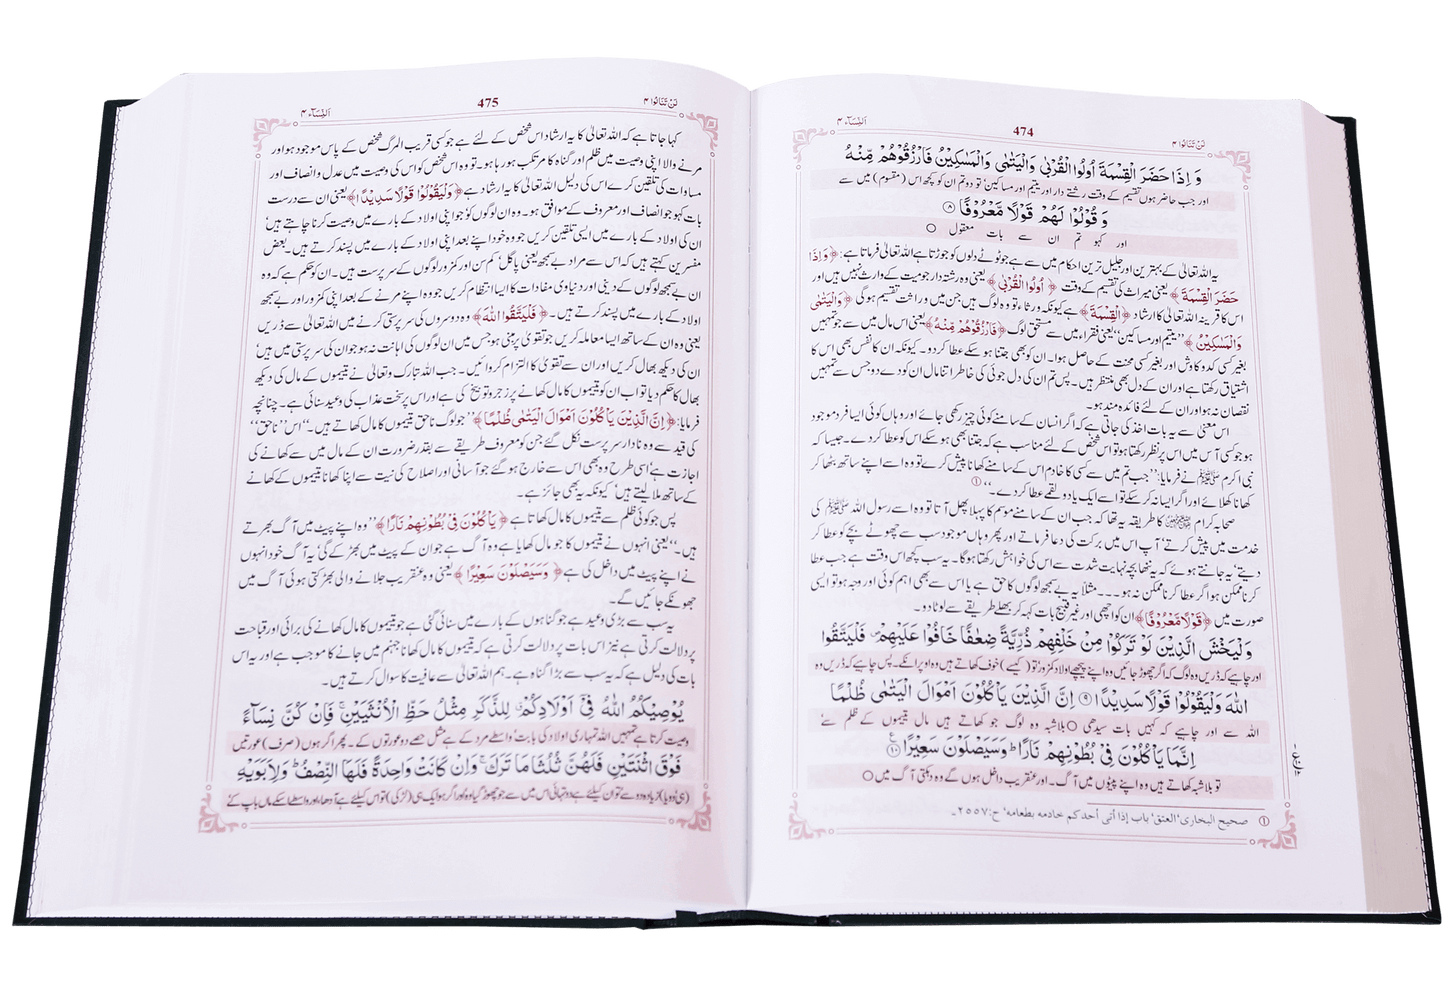 لَنْ تَنَالُوا ۴
474
اَلنِّسَآء ۴
وَ اِذَا حَضَرَ الْقِسْمَةَ اُولُوا الْقُرْبٰى وَالْيَتٰمٰى وَالْمَسٰكِيْنُ فَارْزُقُوْهُمْ مِّنْهُ
اور جب حاضر ہوں تقسیم کے وقت رشتے دار اور یتیم اور مساکین' تو دو تم ان کو کچھ اس (مقسوم) میں سے
وَ قُوْلُوْا لَهُمْ قَوْلًا مَّعْرُوْفًا ﴿۸﴾
اور کہو تم ان سے بات معقول ○
یہ اللہ تعالیٰ کے بہترین اور جلیل ترین احکام میں سے ہے جو ٹوٹے دلوں کو جوڑتا ہے اللہ تعالیٰ فرماتا ہے: ﴿ وَ اِذَا
حَضَرَ الْقِسْمَةَ ﴾ یعنی میراث کی تقسیم کے وقت ﴿ اُولُوا الْقُرْبٰى ﴾ یعنی وہ رشتہ دار جو میت کے وارث نہیں ہیں اور
اس کا قرینہ اللہ تعالیٰ کا ارشاد ﴿الْقِسْمَةَ﴾ ہے کیونکہ ورثاء تو وہ لوگ ہیں جن میں وراثت تقسیم ہو گی ﴿وَالْيَتٰمٰى
وَالْمَسٰكِيْنُ﴾ ''یتیم اور مساکین'' یعنی فقراء میں سے مستحق لوگ ﴿فَارْزُقُوْهُمْ مِّنْهُ﴾ یعنی اس مال میں سے جو تمہیں
بغیر کسی کدو کاوش اور بغیر کسی محنت کے حاصل ہوا۔ ان کو بھی جتنا ہو سکے عطا کر دو۔ کیونکہ ان کا نفس بھی اس کا
اشتیاق رکھتا ہے اور ان کے دل بھی منتظر ہیں۔ پس تم ان کی دل جوئی کی خاطر اتنا مال ان کو دے دو جس سے تمہیں
نقصان نہ ہو اور ان کے لئے فائدہ مند ہو۔
اس معنیٰ سے یہ بات اخذ کی جاتی ہے کہ اگر انسان کے سامنے کوئی چیز رکھی جائے اور وہاں کوئی ایسا فرد موجود
ہو جو سی آس میں اس پر نظر رکھتا ہو تو اس شخص کے لئے مناسب ہے کہ جتنا بھی ہو سکے اس کو عطا کر دے۔ جیسا کہ
نبی اکرم ﷺ نے فرمایا: ''جب تم میں سے کسی کا خادم اس کے سامنے کھانا پیش کرے تو وہ اسے اپنے ساتھ بٹھا کر
کھانا کھلائے اور اگر ایسا نہ کر سکے تو اسے ایک یا دو لقمے عطا کر دے۔'' ①
صحابہ کرام کا طریقہ یہ تھا کہ جب ان کے سامنے موسم کا پہلا پھل آتا تو وہ اسے رسول اللہ ﷺ کی
خدمت میں پیش کرتے' آپ اس میں برکت کی دعا فرماتے اور پھر وہاں موجود سب سے چھوٹے بچے کو عطا کر
دیتے' یہ جانتے ہوئے کہ یہ ننھا بچہ نہایت شدت سے اس کی خواہش رکھتا ہو گا۔ یہ سب کچھ اس وقت ہے جب عطا
کرنا ممکن ہو اگر عطا کرنا ممکن نہ ہو۔۔۔ مثلاً یہ بے سمجھ لوگوں کا حق ہے یا اس سے بھی اہم کوئی اور وجہ ہو تو ایسی
صورت میں ﴿قَوْلًا مَّعْرُوْفًا﴾ ان کو اچھی اور غیر قبیح بات کہہ کر بھلے طریقے سے لوٹا دو۔
وَلْيَخْشَ الَّذِيْنَ لَوْ تَرَكُوْا مِنْ خَلْفِهِمْ ذُرِّيَّةً ضِعٰفًا خَافُوْا عَلَيْهِمْ ۪ فَلْيَتَّقُوا
اور چاہیے کہ ڈریں وہ لوگ کہ اگر چھوڑ جائیں وہ اپنے پیچھے اولاد کمزور' تو (کیسے) خوف کھاتے ہیں وہ اوپر انکے۔ پس چاہیے کہ ڈریں وہ
اللّٰهَ وَلْيَقُوْلُوْا قَوْلًا سَدِيْدًا ﴿۹﴾ اِنَّ الَّذِيْنَ يَاْكُلُوْنَ اَمْوَالَ الْيَتٰمٰى ظُلْمًا
اللہ سے اور چاہیے کہ کہیں بات سیدھی ○ بلاشبہ وہ لوگ جو کھاتے ہیں مال یتیموں کے ظلم سے'
اِنَّمَا يَاْكُلُوْنَ فِيْ بُطُوْنِهِمْ نَارًا ؕ وَسَيَصْلَوْنَ سَعِيْرًا ﴿۱۰﴾
تو بلاشبہ کھاتے ہیں وہ اپنے پیٹوں میں آگ۔ اور عنقریب داخل ہوں گے وہ دہکتی آگ میں ○
① صحيح البخاري' العتق' باب إذا أتى أحدكم خادمه بطعامه' ح:۲۵۵۷۔
لَنْ تَنَالُوا ۴
475
اَلنِّسَآء ۴
کہا جاتا ہے کہ اللہ تعالیٰ کا یہ ارشاد اس شخص کے لئے ہے جو کسی قریب المرگ شخص کے پاس موجود ہو اور
مرنے والا اپنی وصیت میں ظلم اور گناہ کا مرتکب ہو رہا ہو۔ تو وہ اس شخص کو اس کی وصیت میں عدل و انصاف اور
مساوات کی تلقین کرے اس کی دلیل اللہ تعالیٰ کا یہ ارشاد ہے ﴿وَلْيَقُوْلُوْا قَوْلًا سَدِيْدًا﴾ یعنی ان سے درست
بات کہو جو انصاف اور معروف کے موافق ہو۔ وہ ان لوگوں کو جو اپنی اولاد کے بارے میں وصیت کرنا چاہتے ہیں'
ان کی اولاد کے بارے میں ایسی تلقین کریں جو وہ خود اپنے بعد اپنی اولاد کے بارے میں پسند کرتے ہیں۔ بعض
مفسرین کہتے ہیں کہ اس سے مراد بے سمجھ یعنی پاگل' کم سن اور کمزور لوگوں کے سرپرست ہیں۔ ان کو حکم ہے کہ وہ
ان بے سمجھ لوگوں کے دینی اور دنیاوی مفادات کا ایسا انتظام کریں جو وہ اپنے مرنے کے بعد اپنی کمزور اور بے سمجھ
اولاد کے بارے میں پسند کرتے ہیں۔ ﴿فَلْيَتَّقُوا اللّٰهَ﴾ وہ دوسروں کی سرپرستی کرنے میں اللہ تعالیٰ سے ڈریں
یعنی وہ ان کے ساتھ ایسا معاملہ کریں جو تقویٰ پر مبنی ہو جس میں ان لوگوں کی اہانت نہ ہو جو ان کی سرپرستی میں ہیں'
ان کی دیکھ بھال کریں اور ان سے تقویٰ کا التزام کروائیں۔ جب اللہ تبارک وتعالیٰ نے یتیموں کے مال کی دیکھ
بھال کا حکم دیا تو اب ان کو یتیموں کا مال کھانے پر زجر و توبیخ کی ہے اور اس پر سخت عذاب کی وعید سنائی ہے۔ چنانچہ
فرمایا: ﴿اِنَّ الَّذِيْنَ يَاْكُلُوْنَ اَمْوَالَ الْيَتٰمٰى ظُلْمًا﴾ ''جو لوگ ناحق یتیموں کا مال کھاتے ہیں۔'' اس ''ناحق''
کی قید سے وہ نادار سرپرست نکل گئے جن کو معروف طریقے سے بقدر ضرورت ان کے مال میں سے کھانے کی
اجازت ہے' اسی طرح وہ بھی اس سے خارج ہو گئے جو آسانی اور اصلاح کی نیت سے اپنا کھانا یتیموں کے کھانے
کے ساتھ ملا لیتے ہیں' کیونکہ یہ بھی جائز ہے۔
پس جو کوئی ظلم سے یتیموں کا مال کھاتا ہے ﴿ يَاْكُلُوْنَ فِيْ بُطُوْنِهِمْ نَارًا ﴾ ''وہ اپنے پیٹ میں آگ بھرتے
ہیں۔'' یعنی انہوں نے یتیموں کا جو مال کھایا ہے وہ آگ ہے جو ان کے پیٹ میں بھڑکے گی' یہ آگ خود انہوں
نے اپنے پیٹ میں داخل کی ہے ﴿ وَسَيَصْلَوْنَ سَعِيْرًا ﴾ یعنی وہ عنقریب جلانے والی بھڑکتی ہوئی آگ میں
جھونکے جائیں گے۔
یہ سب سے بڑی وعید ہے جو گناہوں کے بارے میں سنائی گئی ہے جو یتیموں کا مال کھانے کی برائی اور قباحت
پر دلالت کرتی ہے نیز اس بات پر دلالت کرتی ہے کہ یتیموں کا مال کھانا جہنم میں جانے کا موجب ہے اور یہ اس
بات کی دلیل ہے کہ یہ سب سے بڑا گناہ ہے۔ ہم اللہ تعالیٰ سے عافیت کا سوال کرتے ہیں۔
يُوْصِيْكُمُ اللّٰهُ فِيْٓ اَوْلَادِكُمْ ۤ لِلذَّكَرِ مِثْلُ حَظِّ الْاُنْثَيَيْنِ ۚ فَاِنْ كُنَّ نِسَآءً
وصیت کرتا ہے تمہیں اللہ تمہاری اولاد کی بابت' واسطے مرد کے ہے مثل حصے دو عورتوں کے۔ پھر اگر ہوں (صرف) عورتیں
فَوْقَ اثْنَتَيْنِ فَلَهُنَّ ثُلُثَا مَا تَرَكَ ۚ وَاِنْ كَانَتْ وَاحِدَةً فَلَهَا النِّصْفُ ؕ وَلِاَبَوَيْهِ
(ہی) دو یا زیادہ دو سے تو ان کیلئے ہے دو تہائی اس میں سے جو چھوڑ گیا وہ اور اگر ہو ایک ہی (لڑکی) تو اس کیلئے ہے آدھا' اور واسطے اسکے ماں باپ کے'